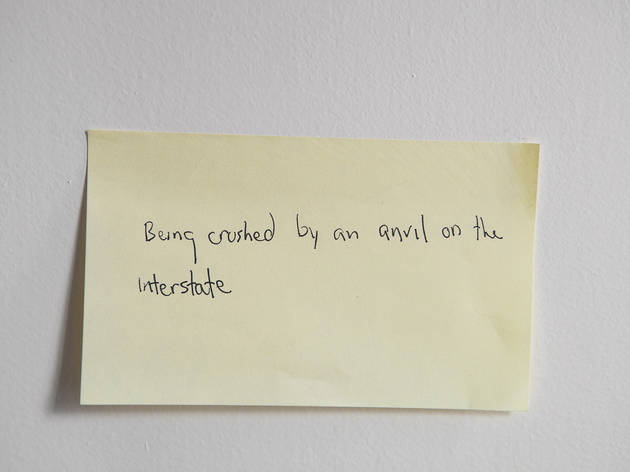 Being crushed by an anvil on the
interstate